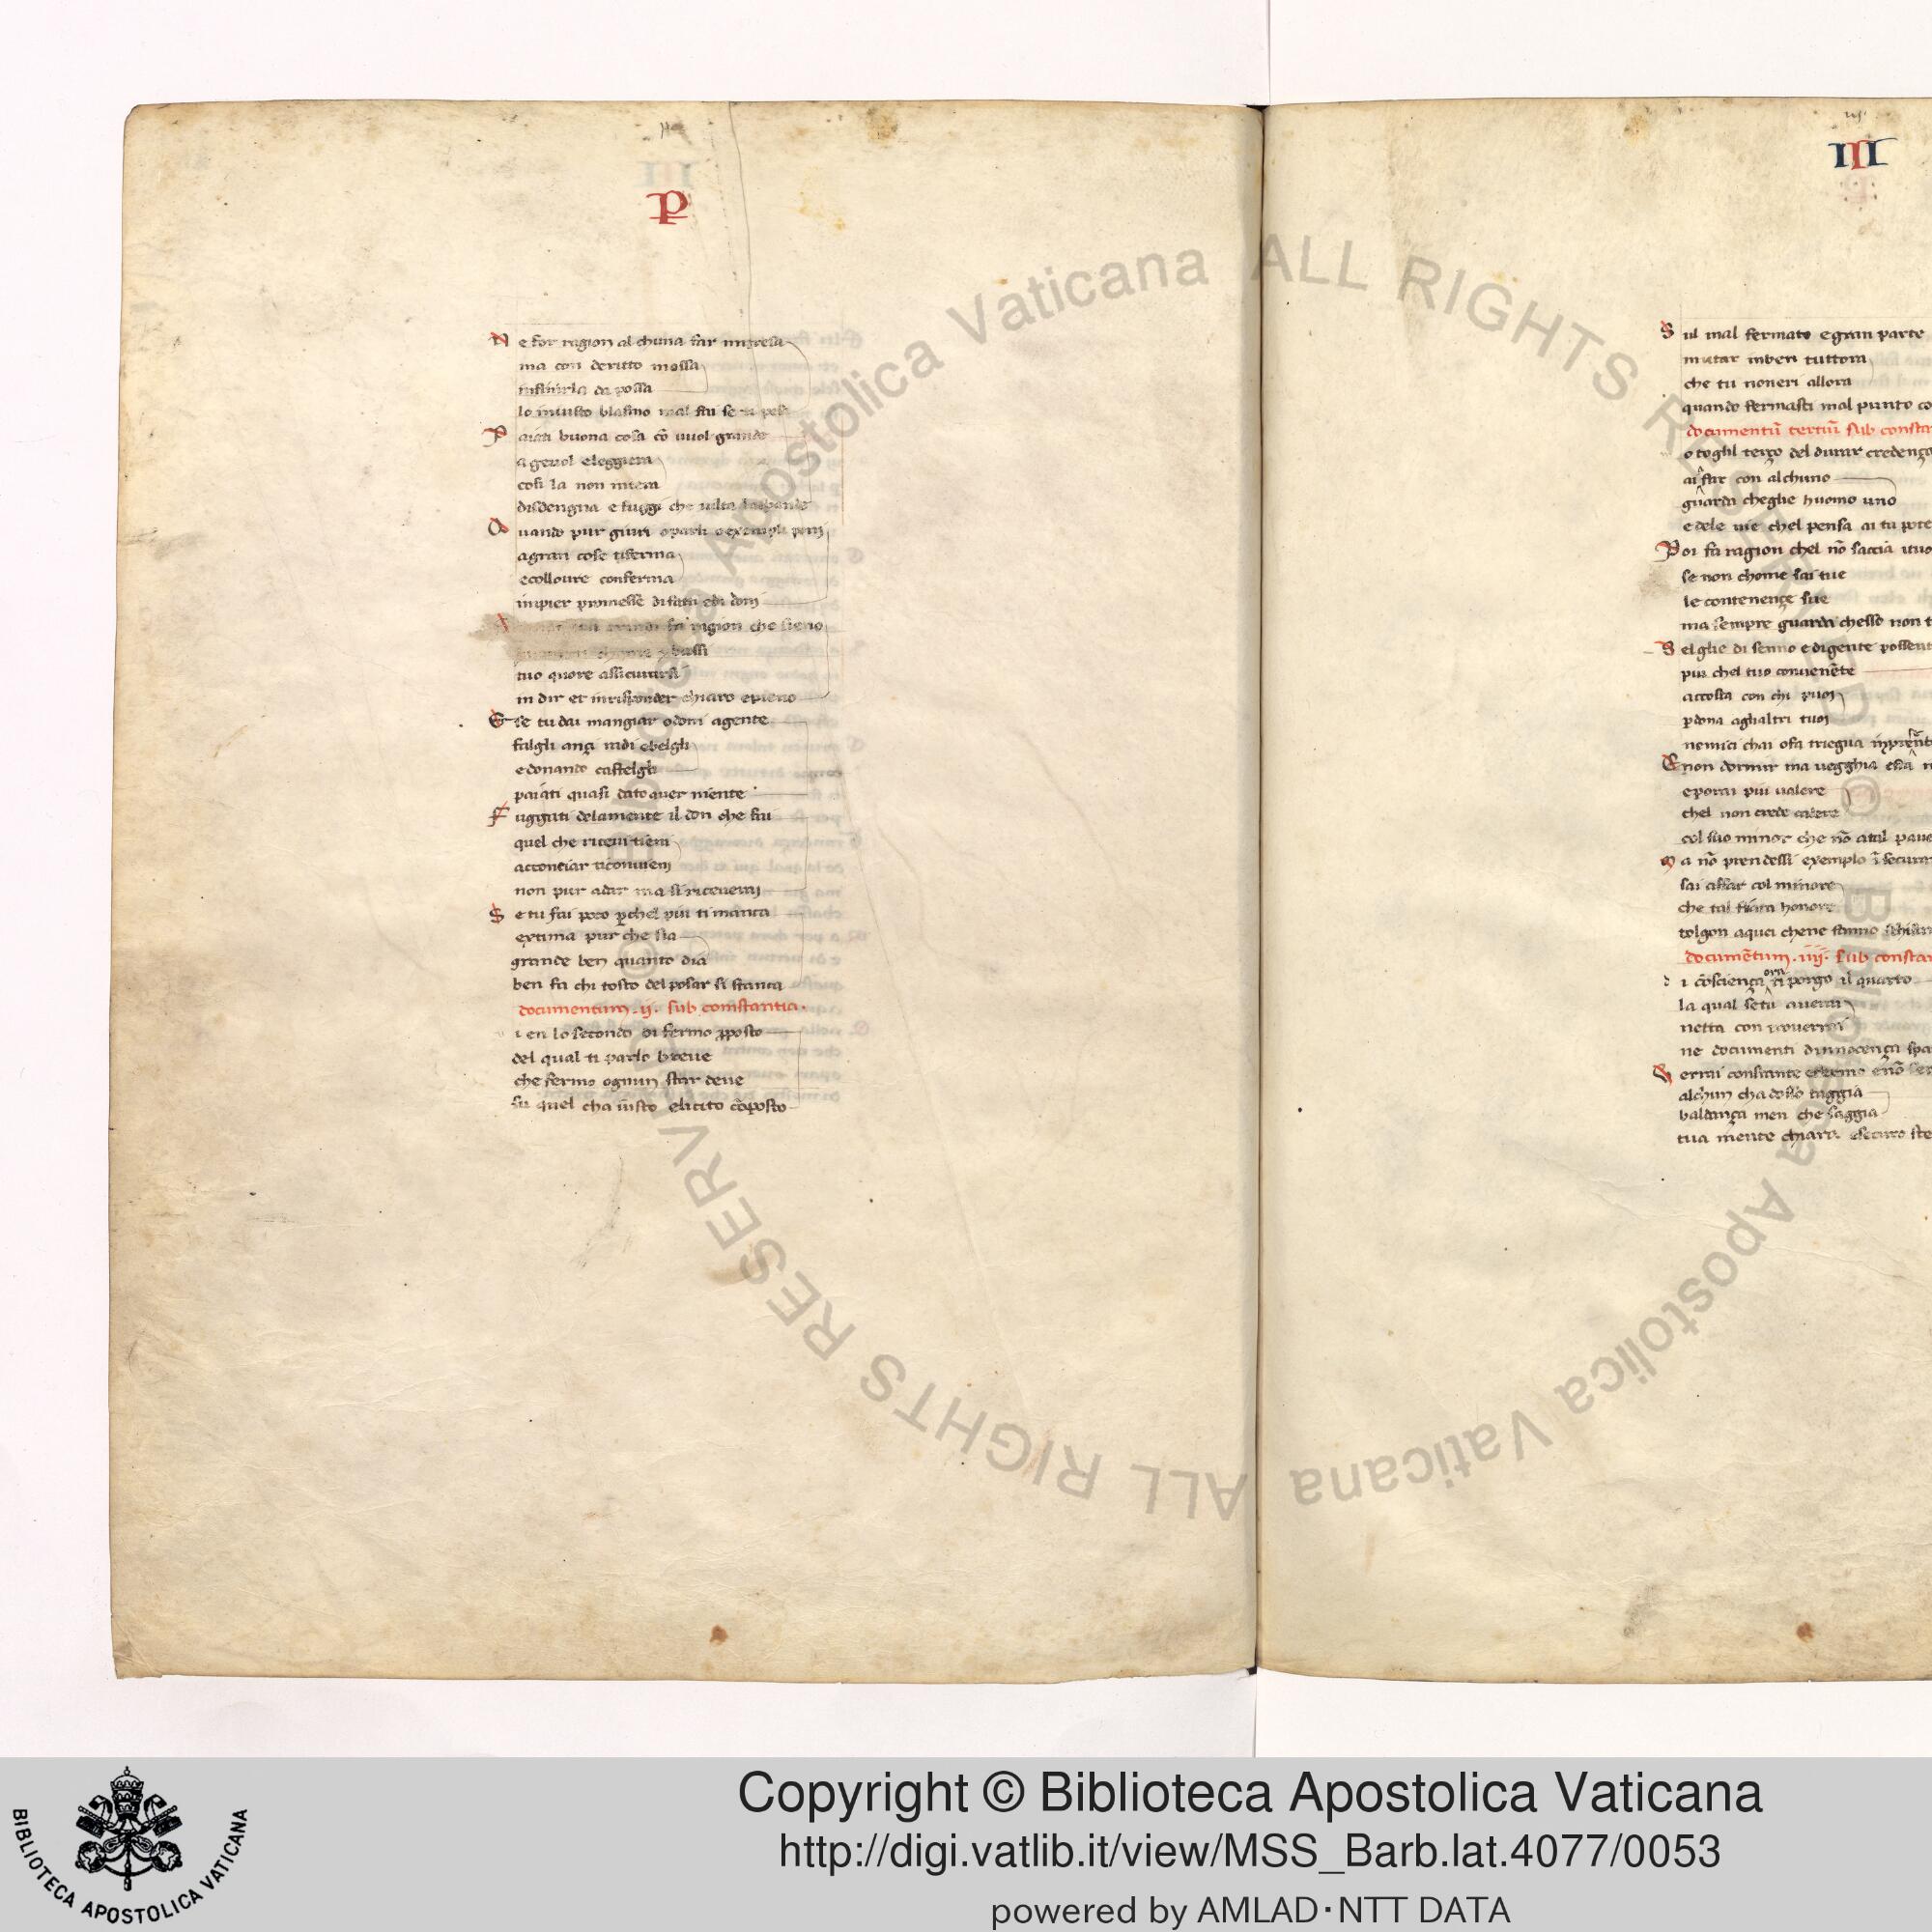 P
N e for ragion alchuna far impresa
ma con deritto mossa
infinirla da possa
lo iniusto blasmo mal
P aiati buona cosa cō uuol grande
ageuol eleggiera
cosi la non intera
disdengna e fuggi che
Q uando pur giuri o parli o exempli poni
agran cose tiferma
ecolloure conferma
impier promesse di fatti edi doni
fa ragion che sieno
bassi
tuo quore assicurirasi
in dir et inrisponder chiaro epieno
E se tu dai mangiar odoni agente
falgli ançi uidi ebelgli
edonando castelgli
paiati quasi dato auer niente
F uggati delamente il don che fai
quel che riceui tieni
acconciar ticonuieni
non pur adar ma si riceuerai
S e tu fai poco ꝑchel piu ti manca
extima pur che sia
grande ben quanto dia
ben fa chi tosto del posar si stanca
documentum .ij. sub constantia.
i en lo secondo di fermo ꝓposto
del qual ti parlo breue
che fermo ognun star deue
su quel cha iusto elicito cōposto
III
S ul mal fermato egran parte
mutar inben tuttora
che tu noneri allora
quando fermasti mal punto co
documentū tertiū sub consta
o toglil terço del durar credença
ai far con alchuno
guarda cheglie huomo uno
edele uie chel pensa ai tu pote
P oi fa ragion chel nō faccia
se non chome fai tue
le contenençe sue
ma sempre guarda chesso non t
S elglie di senno e digente possent
piu chel tuo conuenēte
accosta con chi puoi
ꝑdona aglialtri tuoi
nemici chai ofa triegua
E non dormir ma uegghia
eporai piu ualere
chel non crede calere
col suo minor che nō atal paue
M a nō prendessi exemplo ī securar
fai affar col minore
che tal fiata honore
tolgon aquei chene fanno
documētum .iiij. sub constan
i cōsciença ora ti porgo il quarto
la qual se tu auerai
netta con trouerrai
ne documenti dinnocença spa
V errai constante
alchun cha dosso taggia
baldança men che saggia
tua mente chiara esecuro ste
ALL RIGHTS RESERVED
© Biblioteca Apostolica Vaticana
ALL RIGHTS RESERVED
© Biblioteca Apostolica Vaticana
BIBLIOTECA APOSTOLICA VATICANA
Copyright © Biblioteca Apostolica Vaticana
http://digi.vatlib.it/view/MSS_Barb.lat.4077/0053
powered by AMLAD·NTT DATA